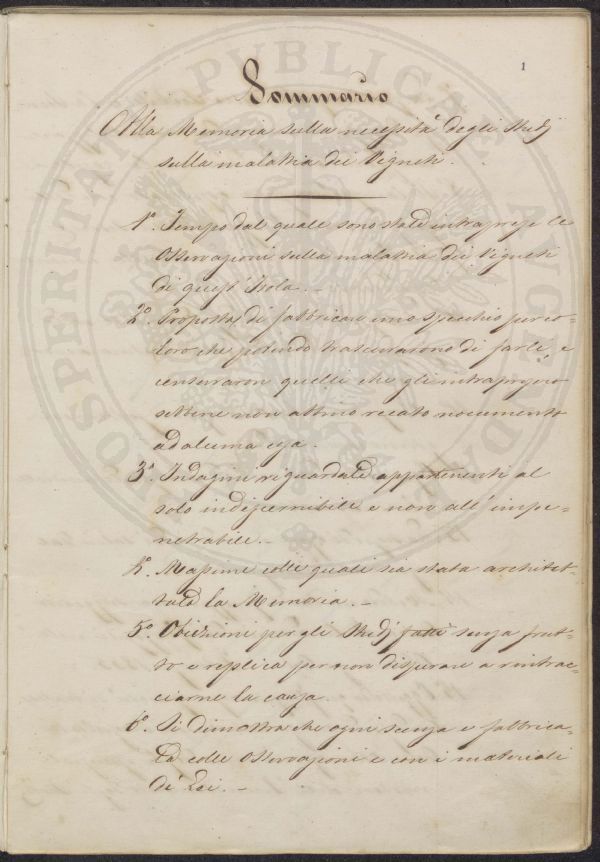 1
Sommario
Alla Memoria sulla necessità degli Studj
sulla malattia dei Vigneti.
1º. Tempo dal quale sono state intraprese le
Osservazioni sulla malattia dei Vigneti
di quest' Isola. –
2º. Proposta di fabbricare uno specchio per co-
loro che potendo trascurarono di farle, e
censuraron quelli che gli intrapresero
sebbene non abbino recato nocumento
ad alcuna cosa.
3º. Indagini riguardate appartenenti al
solo indiscernibile e non all' impe-
netrabile. –
4º. Massime colle quali sia stata architet-
tata la Memoria. –
5º. Obiezioni per gli Studj fatti senza frut-
to e replica per non disperare a rintrac-
ciarne la causa.
6º. Si dimostra che ogni scienza è fabbrica-
ta colle Osservazioni e con i materiali
di Lei. –
PROSPERITATI PUBLICAE AUGENDAE